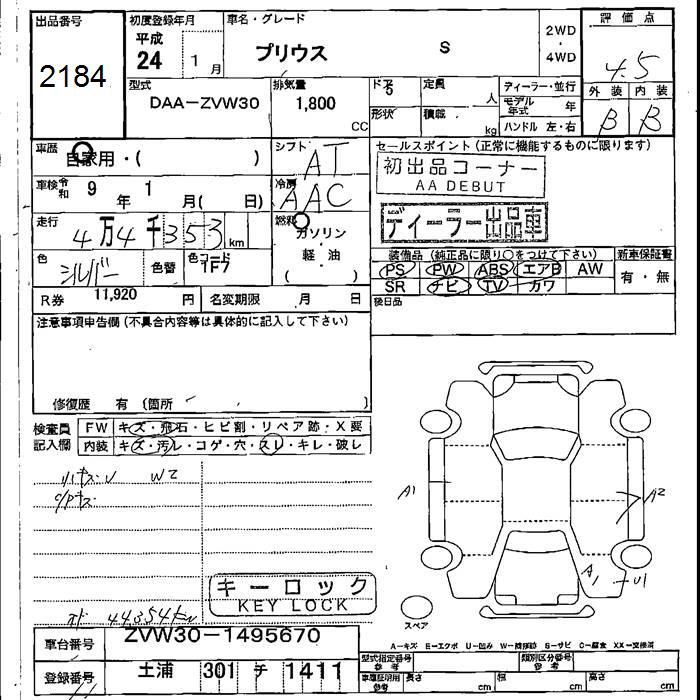 出品番号 初度登録年月 車名・グレード 評価点
2184 平成 24 1月 プリウス S 2WD・4WD 4.5
型式 排気量 ドア 定員 ディーラー・並行 外装 内装
DAA-ZVW30 1,800 CC 5 人 モデル年式 年 B B
形状 積載 kg ハンドル 左・右
車歴 自家用・( ) シフト AT セールスポイント(正常に機能するものに限ります)
初出品コーナー
AA DEBUT
車検 令和 9年 1月( 日) 冷房 AAC
ディーラー出品車
走行 4万4千353km 燃料 ガソリン・軽油
装備品(純正品に限り○をつけて下さい) 新車保証書
色 シルバー 色替 色コード 1F7
PS PW ABS エアB AW 有・無
SR ナビ TV カワ
R券 11,920円 名変期限 月 日 後日品
注意事項申告欄(不具合内容等は具体的に記入して下さい)
修復歴 有(箇所 )
検査員記入欄 FW キズ・飛石・ヒビ割・リペア跡・X要
内装 キズ・汚レ・コゲ・穴・スレ・キレ・破レ
W2
A1 A2
A1 U1
キーロック
KEY LOCK
スペア
44354km
車台番号 ZVW30-1495670
A-キズ E-エクボ U-凹み W-補修跡 S-サビ C-腐食 XX-交換済
登録番号 土浦 301 チ 1411
型式指定番号 参考 類別区分番号 参考
車庫証明用 参考 長さ cm 巾 cm 高さ cm